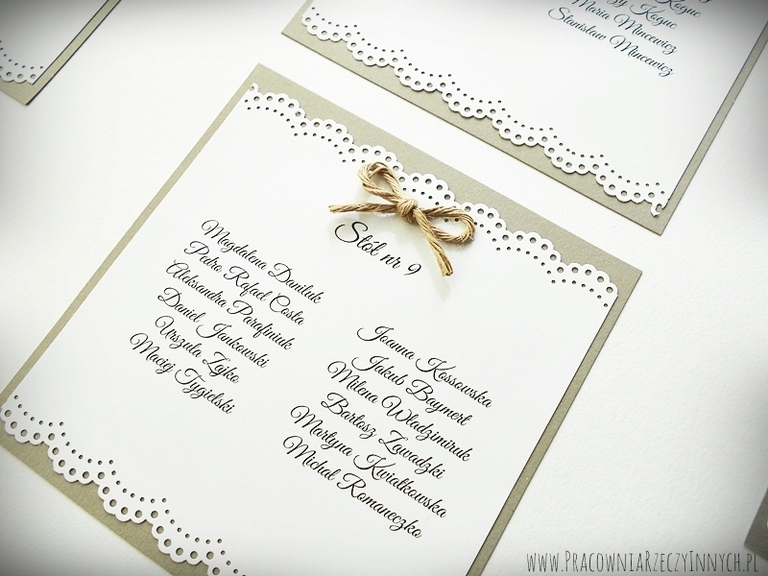 Kogue
Maria Mincewicz
Stanisław Mincewicz
Stół nr 9
Magdalena Daniluk
Pedro Rafael Costa
Aleksandra Parafiniuk
Daniel Jankowski
Urszula Zajko
Maciej Tygielski
Joanna Kossowska
Jakub Baymert
Milena Władzimiruk
Bartosz Zawadzki
Martyna Kwiatkowska
Michał Romaneczko
www.PracowniaRzeczyInnych.pl